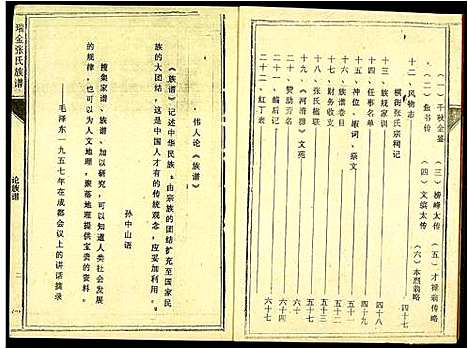 (二)千秋金鉴 (三)榜峰太传 (五)才禄翁传略
(二)金书传 (四)文缤太传 (六)本烈翁略
十二、风物志 四十七
横街张氏宗祠记
十三、族规家训 四十八
十四、任事名单 四十九
十五、神位、嘏词、祭文
十六、族谱卷目
十七、财务收支 五十三
十八、张氏楹联
十九、《河清谱》文苑 五十七
二十、赞助芳名 六十
二十一、编后记 六十四
二十二、红丁表 六十七
瑞金张氏族谱
论族谱
二
伟人论《族谱》
《族谱》记述中华民族:由宗族的团结扩充至国家民
族的大团结,这是中国人才有的传统观念,应妥加利用。
孙中山语
搜集家谱、族谱、加以研究,可以知道人类社会发展
的规律,也可以为人文地理,聚落地理提供宝贵的资料。
毛泽东一九五七年在成都会议上的讲话摘录